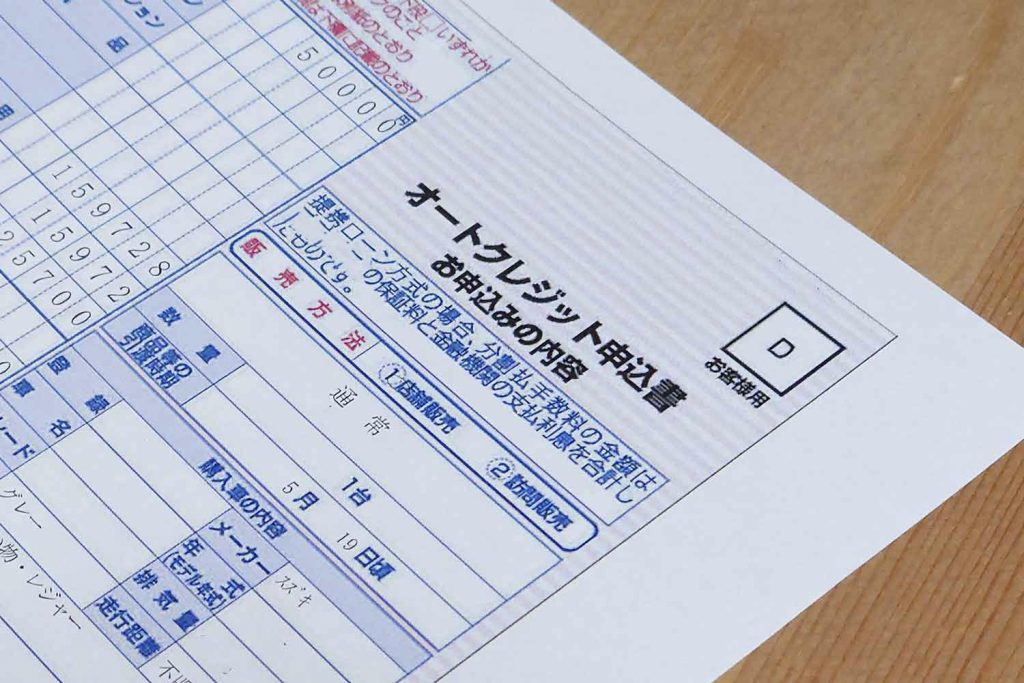 いずれか
のとおり
下欄に記載のとおり
ション
品
用
50000円
159728
15972
25700
オートクレジット申込書
お申込みの内容
D
お客様用
提携ローン方式の場合、分割払手数料の金額は
の保証料と金融機関の支払利息を合計し
たものです。
販売方法
①店舗販売
②訪問販売
数量
通常
1台
商品等の
引渡時期
5月
19日頃
購入車の内容
登録
車名
メーカー
スズキ
年式
(モデル年式)
排気量
走行距離
グレー
物・レジャー